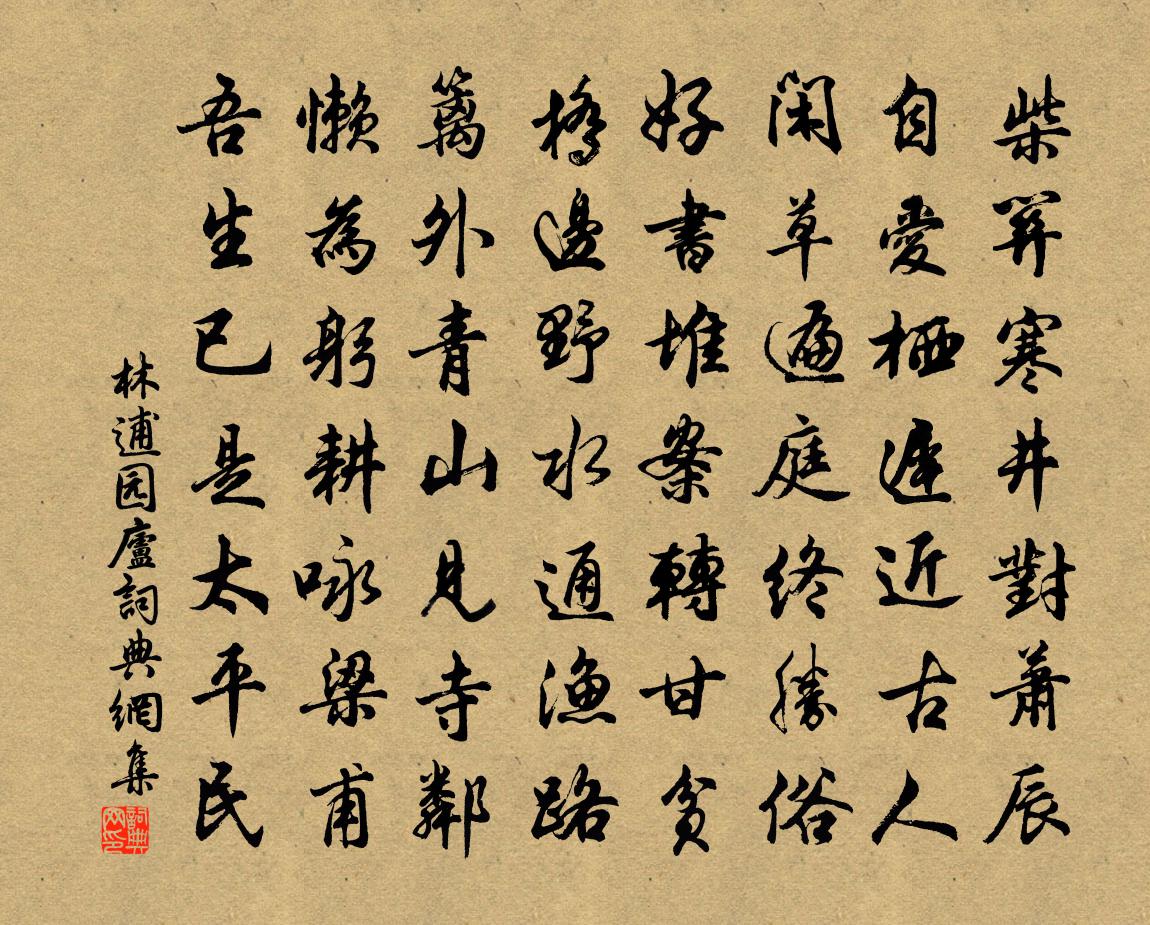 柴笄寒井對蕭辰
自愛栖遲近古人
閑草遍庭終勝俗
好書堆案轉甘貧
橋邊野水通漁路
篱外青山見寺鄰
懶為躬耕咏梁甫
吾生已是太平民
林逋园廬詞典網集
詞典网印